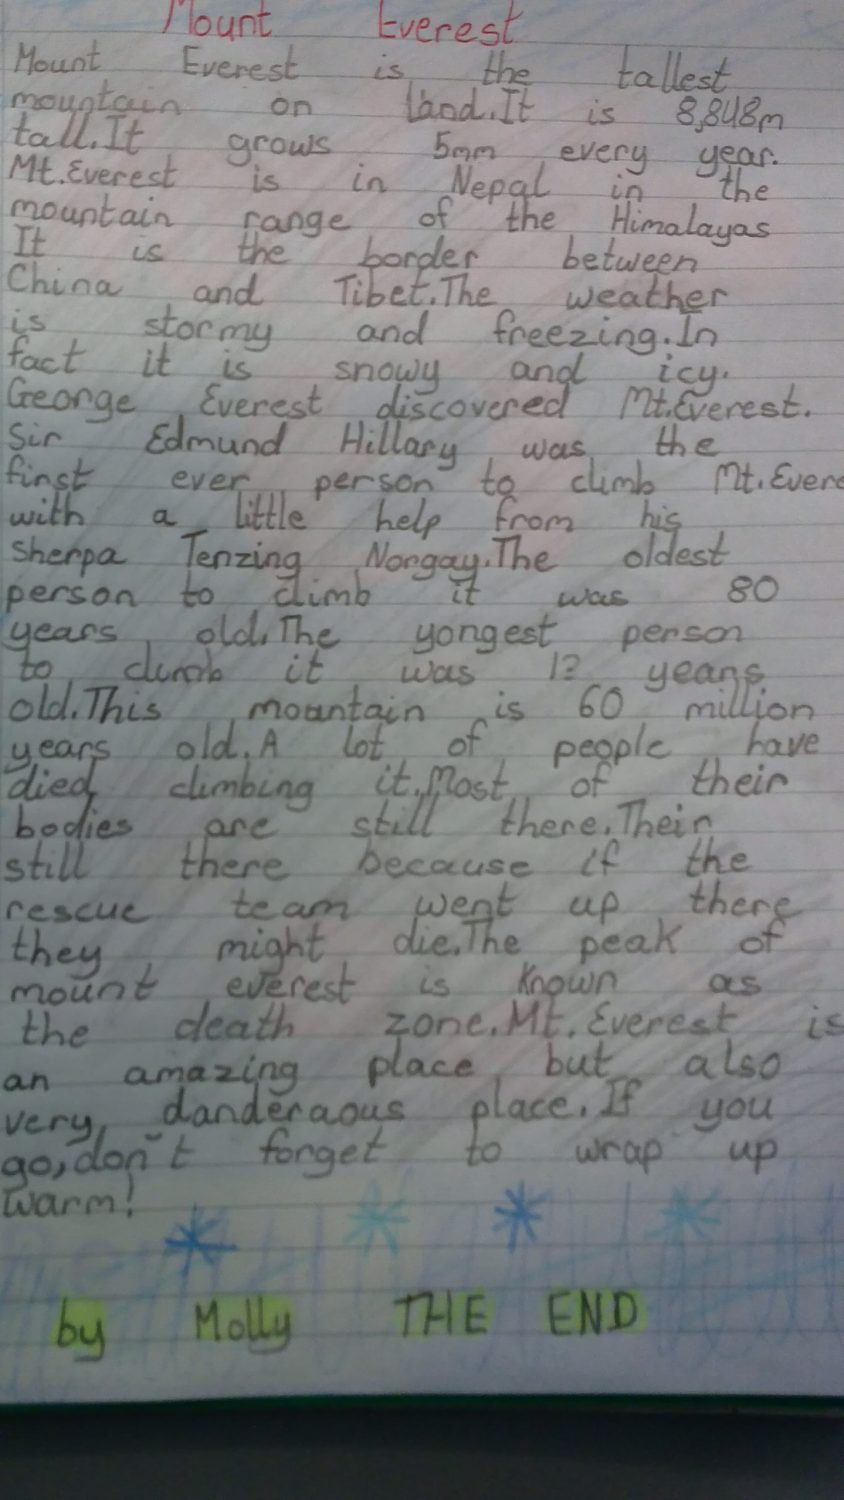 Mount Everest
Mount Everest is the tallest
mountain on land.It is 8,848m
tall.It grows 5mm every year.
Mt.Everest is in Nepal in the
mountain range of the Himalayas
It is the border between
China and Tibet.The weather
is stormy and freezing.In
fact it is snowy and icy.
George Everest discovered Mt.Everest.
Sir Edmund Hillary was the
first ever person to climb Mt.Evere
with a little help from his
sherpa Tenzing Norgay.The oldest
person to climb it was 80
years old.The yongest person
to climb it was years
old.This mountain is 60 million
years old.A lot of people have
died climbing it.Most of their
bodies are still there.Their
still there because if the
rescue team went up there
they might die.The peak of
mount everest is known as
the death zone.Mt.Everest is
an amazing place but also
very danderaous place.If you
go,don't forget to wrap up
warm!
by Molly THE END